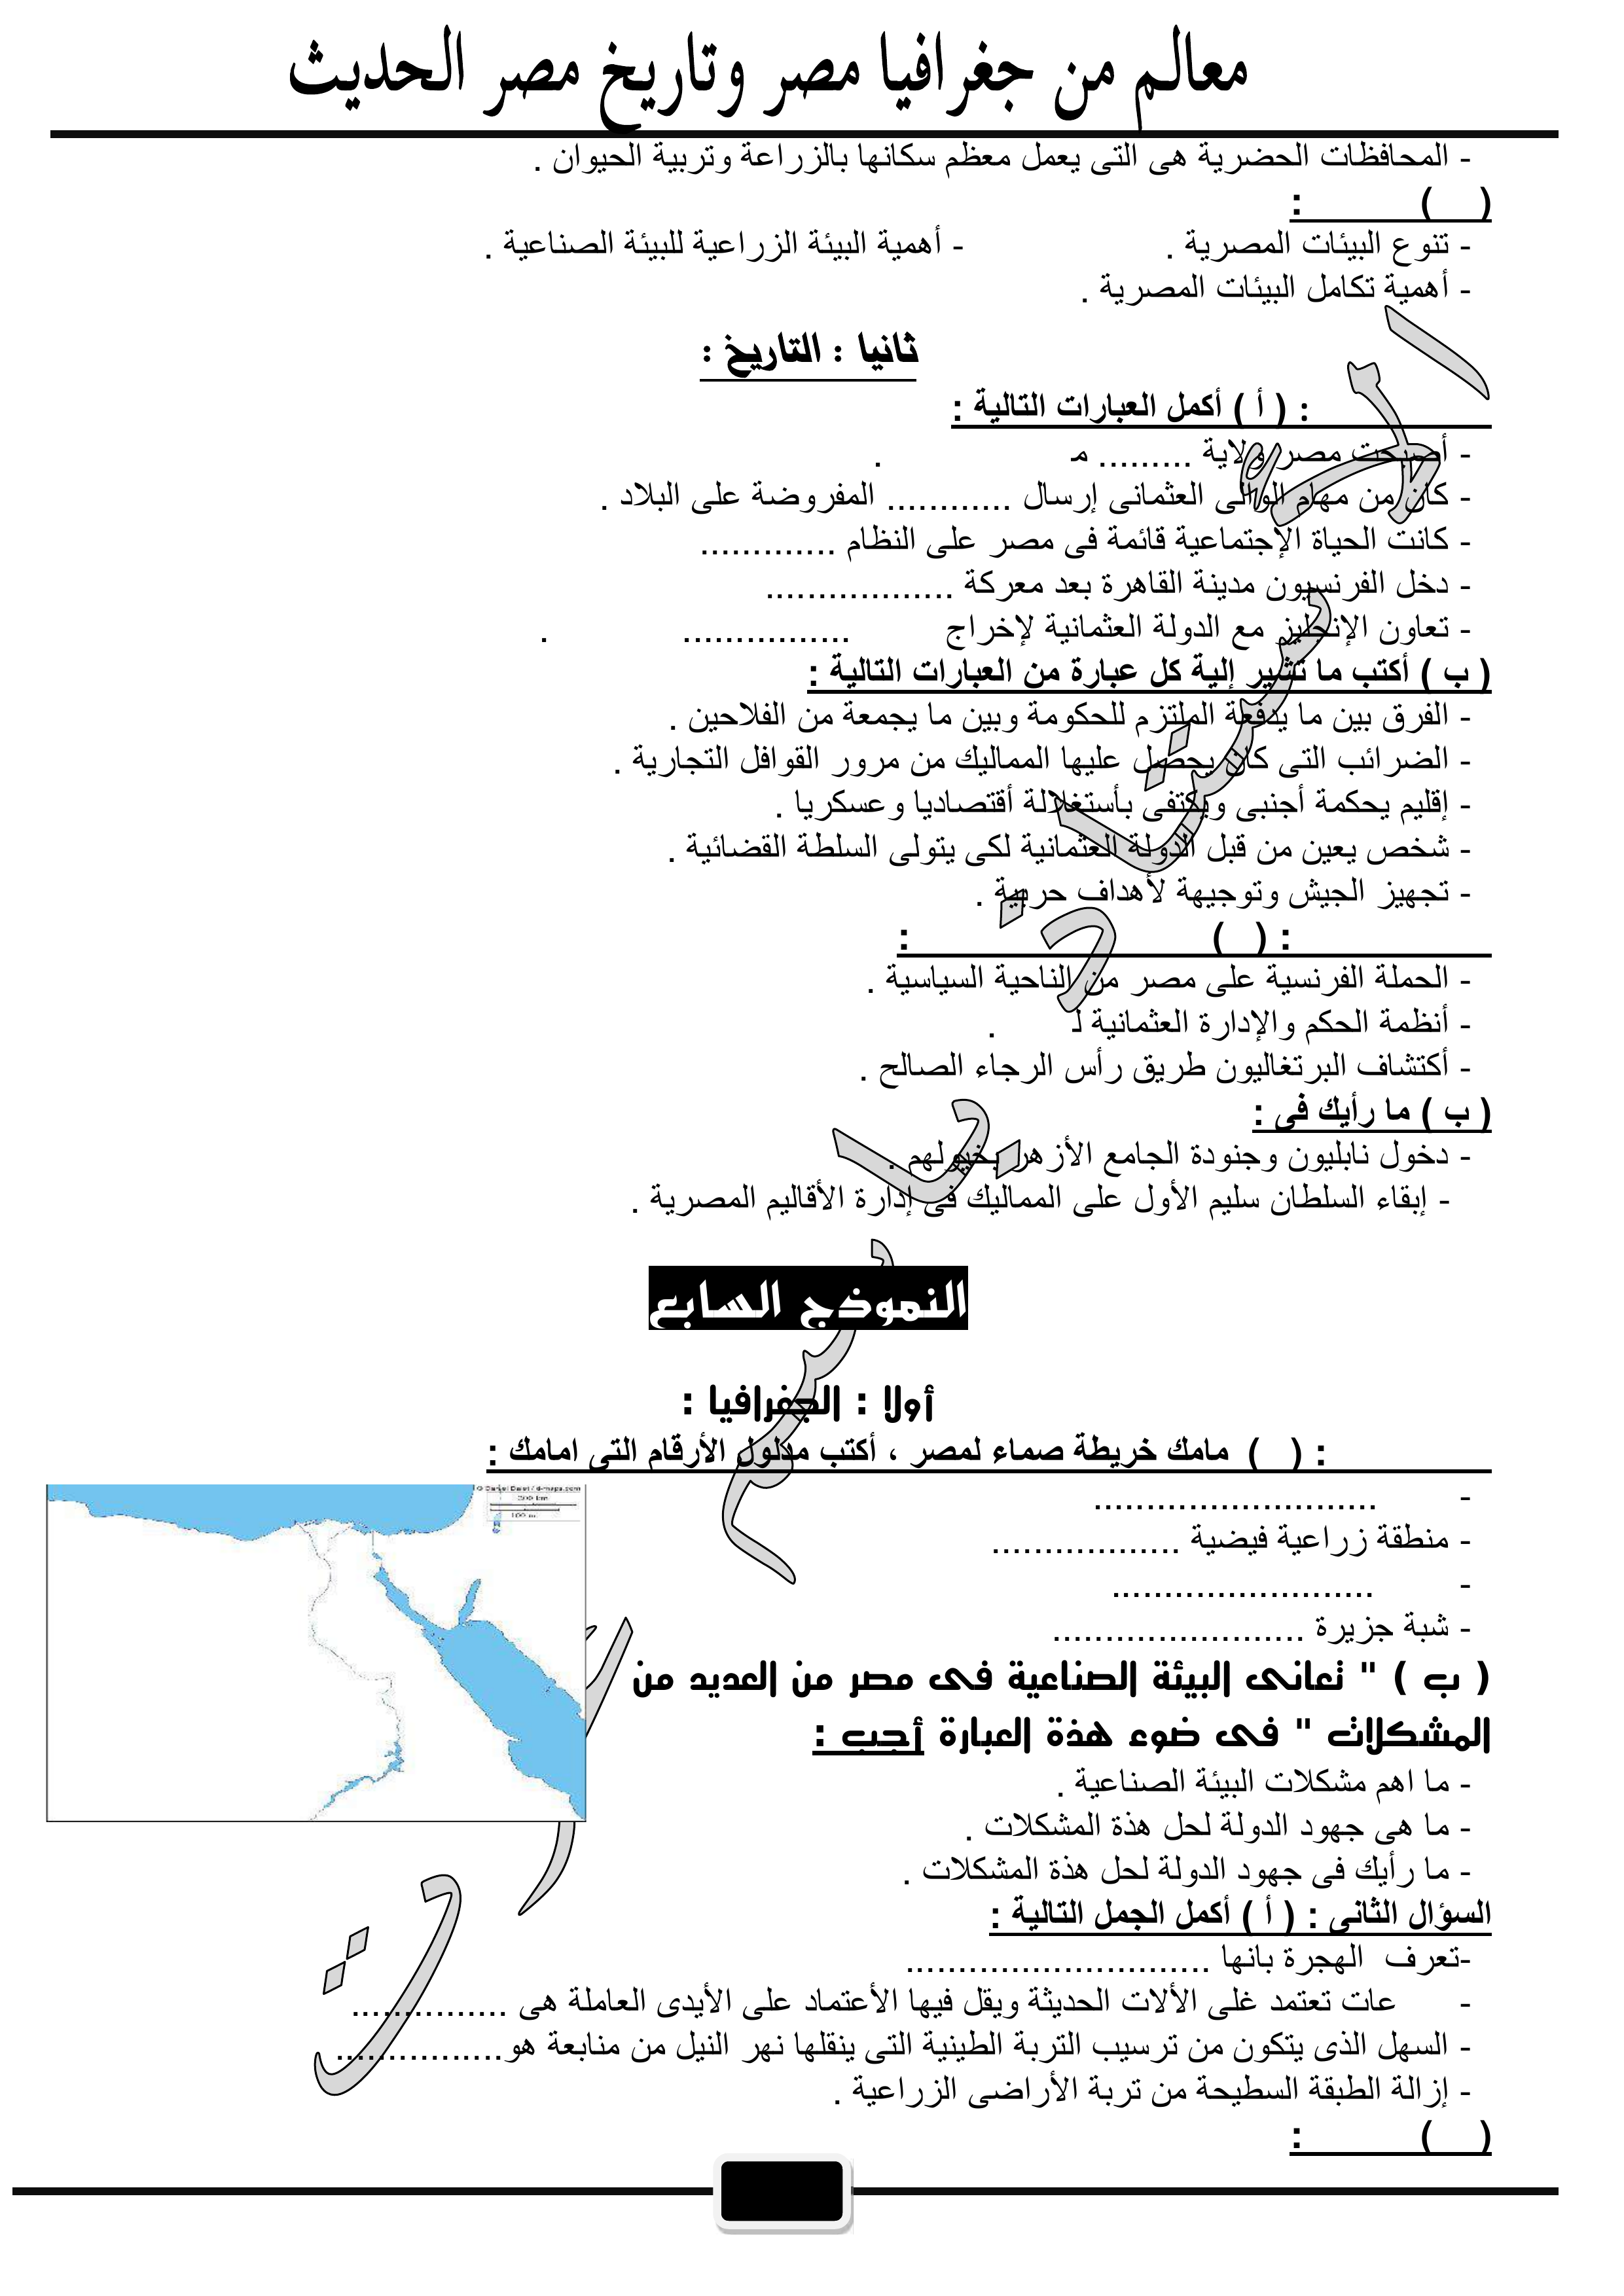 معالم من جغرافيا مصر وتاريخ مصر الحديث
- المحافظات الحضرية هى التى يعمل معظم سكانها بالزراعة وتربية الحيوان .
( ) :
- تنوع البيئات المصرية . - أهمية البيئة الزراعية للبيئة الصناعية .
- أهمية تكامل البيئات المصرية .
ثانيا : التاريخ :
: ( أ ) أكمل العبارات التالية :
- أصبحت مصر ولاية ......... مـ .
- كان من مهام الوالى العثمانى إرسال ............ المفروضة على البلاد .
- كانت الحياة الإجتماعية قائمة فى مصر على النظام .............
- دخل الفرنسيون مدينة القاهرة بعد معركة ..................
- تعاون الإنجليز مع الدولة العثمانية لإخراج ................ .
( ب ) أكتب ما تشير إلية كل عبارة من العبارات التالية :
- الفرق بين ما يدفعة الملتزم للحكومة وبين ما يجمعة من الفلاحين .
- الضرائب التى كان يحصل عليها المماليك من مرور القوافل التجارية .
- إقليم يحكمة أجنبى ويكتفى بأستغلالة أقتصاديا وعسكريا .
- شخص يعين من قبل الدولة العثمانية لكى يتولى السلطة القضائية .
- تجهيز الجيش وتوجيهة لأهداف حربية .
: ( ) :
- الحملة الفرنسية على مصر من الناحية السياسية .
- أنظمة الحكم والإدارة العثمانية لـ .
- أكتشاف البرتغاليون طريق رأس الرجاء الصالح .
( ب ) ما رأيك فى :
- دخول نابليون وجنودة الجامع الأزهر بخيولهم .
- إبقاء السلطان سليم الأول على المماليك فى إدارة الأقاليم المصرية .
النموذج السابع
أولا : الجغرافيا :
: ( ) مامك خريطة صماء لمصر ، أكتب مدلول الأرقام التى امامك :
- ...........................
- منطقة زراعية فيضية ..................
- .........................
- شبة جزيرة ........................
( ب ) " تعانى البيئة الصناعية فى مصر من العديد من
المشكلات " فى ضوء هذة العبارة أجب :
- ما اهم مشكلات البيئة الصناعية .
- ما هى جهود الدولة لحل هذة المشكلات .
- ما رأيك فى جهود الدولة لحل هذة المشكلات .
السؤال الثانى : ( أ ) أكمل الجمل التالية :
-تعرف الهجرة بانها .............................
- عات تعتمد غلى الألات الحديثة ويقل فيها الأعتماد على الأيدى العاملة هى ...............
- السهل الذى يتكون من ترسيب التربة الطينية التى ينقلها نهر النيل من منابعة هو................
- إزالة الطبقة السطيحة من تربة الأراضى الزراعية .
( ) :